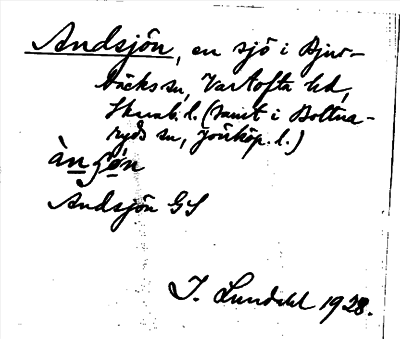 Andsjön, en sjö i Bjur-
bäcks sn, Vartofta hd,
Skarab. l. (samt i Bottna-
ryds sn, Jönköp. l.)
àngøn
Andsjön GS
I. Lundahl 1928.